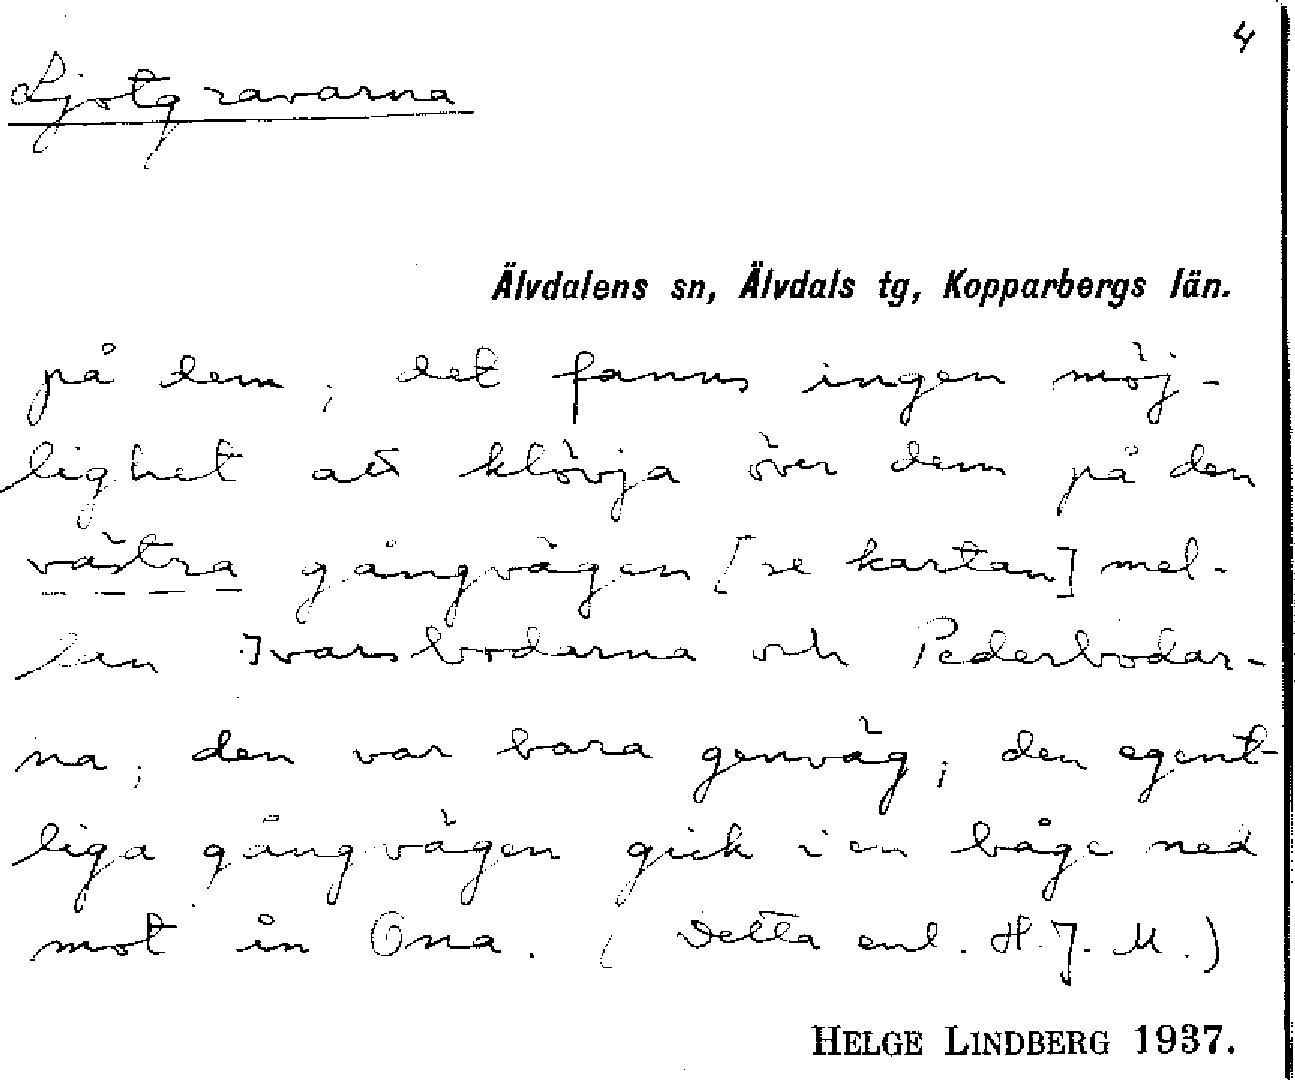 4
Ljotgravarna
Älvdalens sn, Älvdals tg, Kopparbergs län.
på dem; det fanns ingen möj-
lighet att klövja över dem på den
västra gångvägen [se kartan] mel-
lan Ivarsbodarna och Pederbodar-
na; den var bara genväg; den egent-
liga gångvägen gick i en båge ned
mot ån Ona. (Detta enl. H.J.M.)
HELGE LINDBERG 1937.